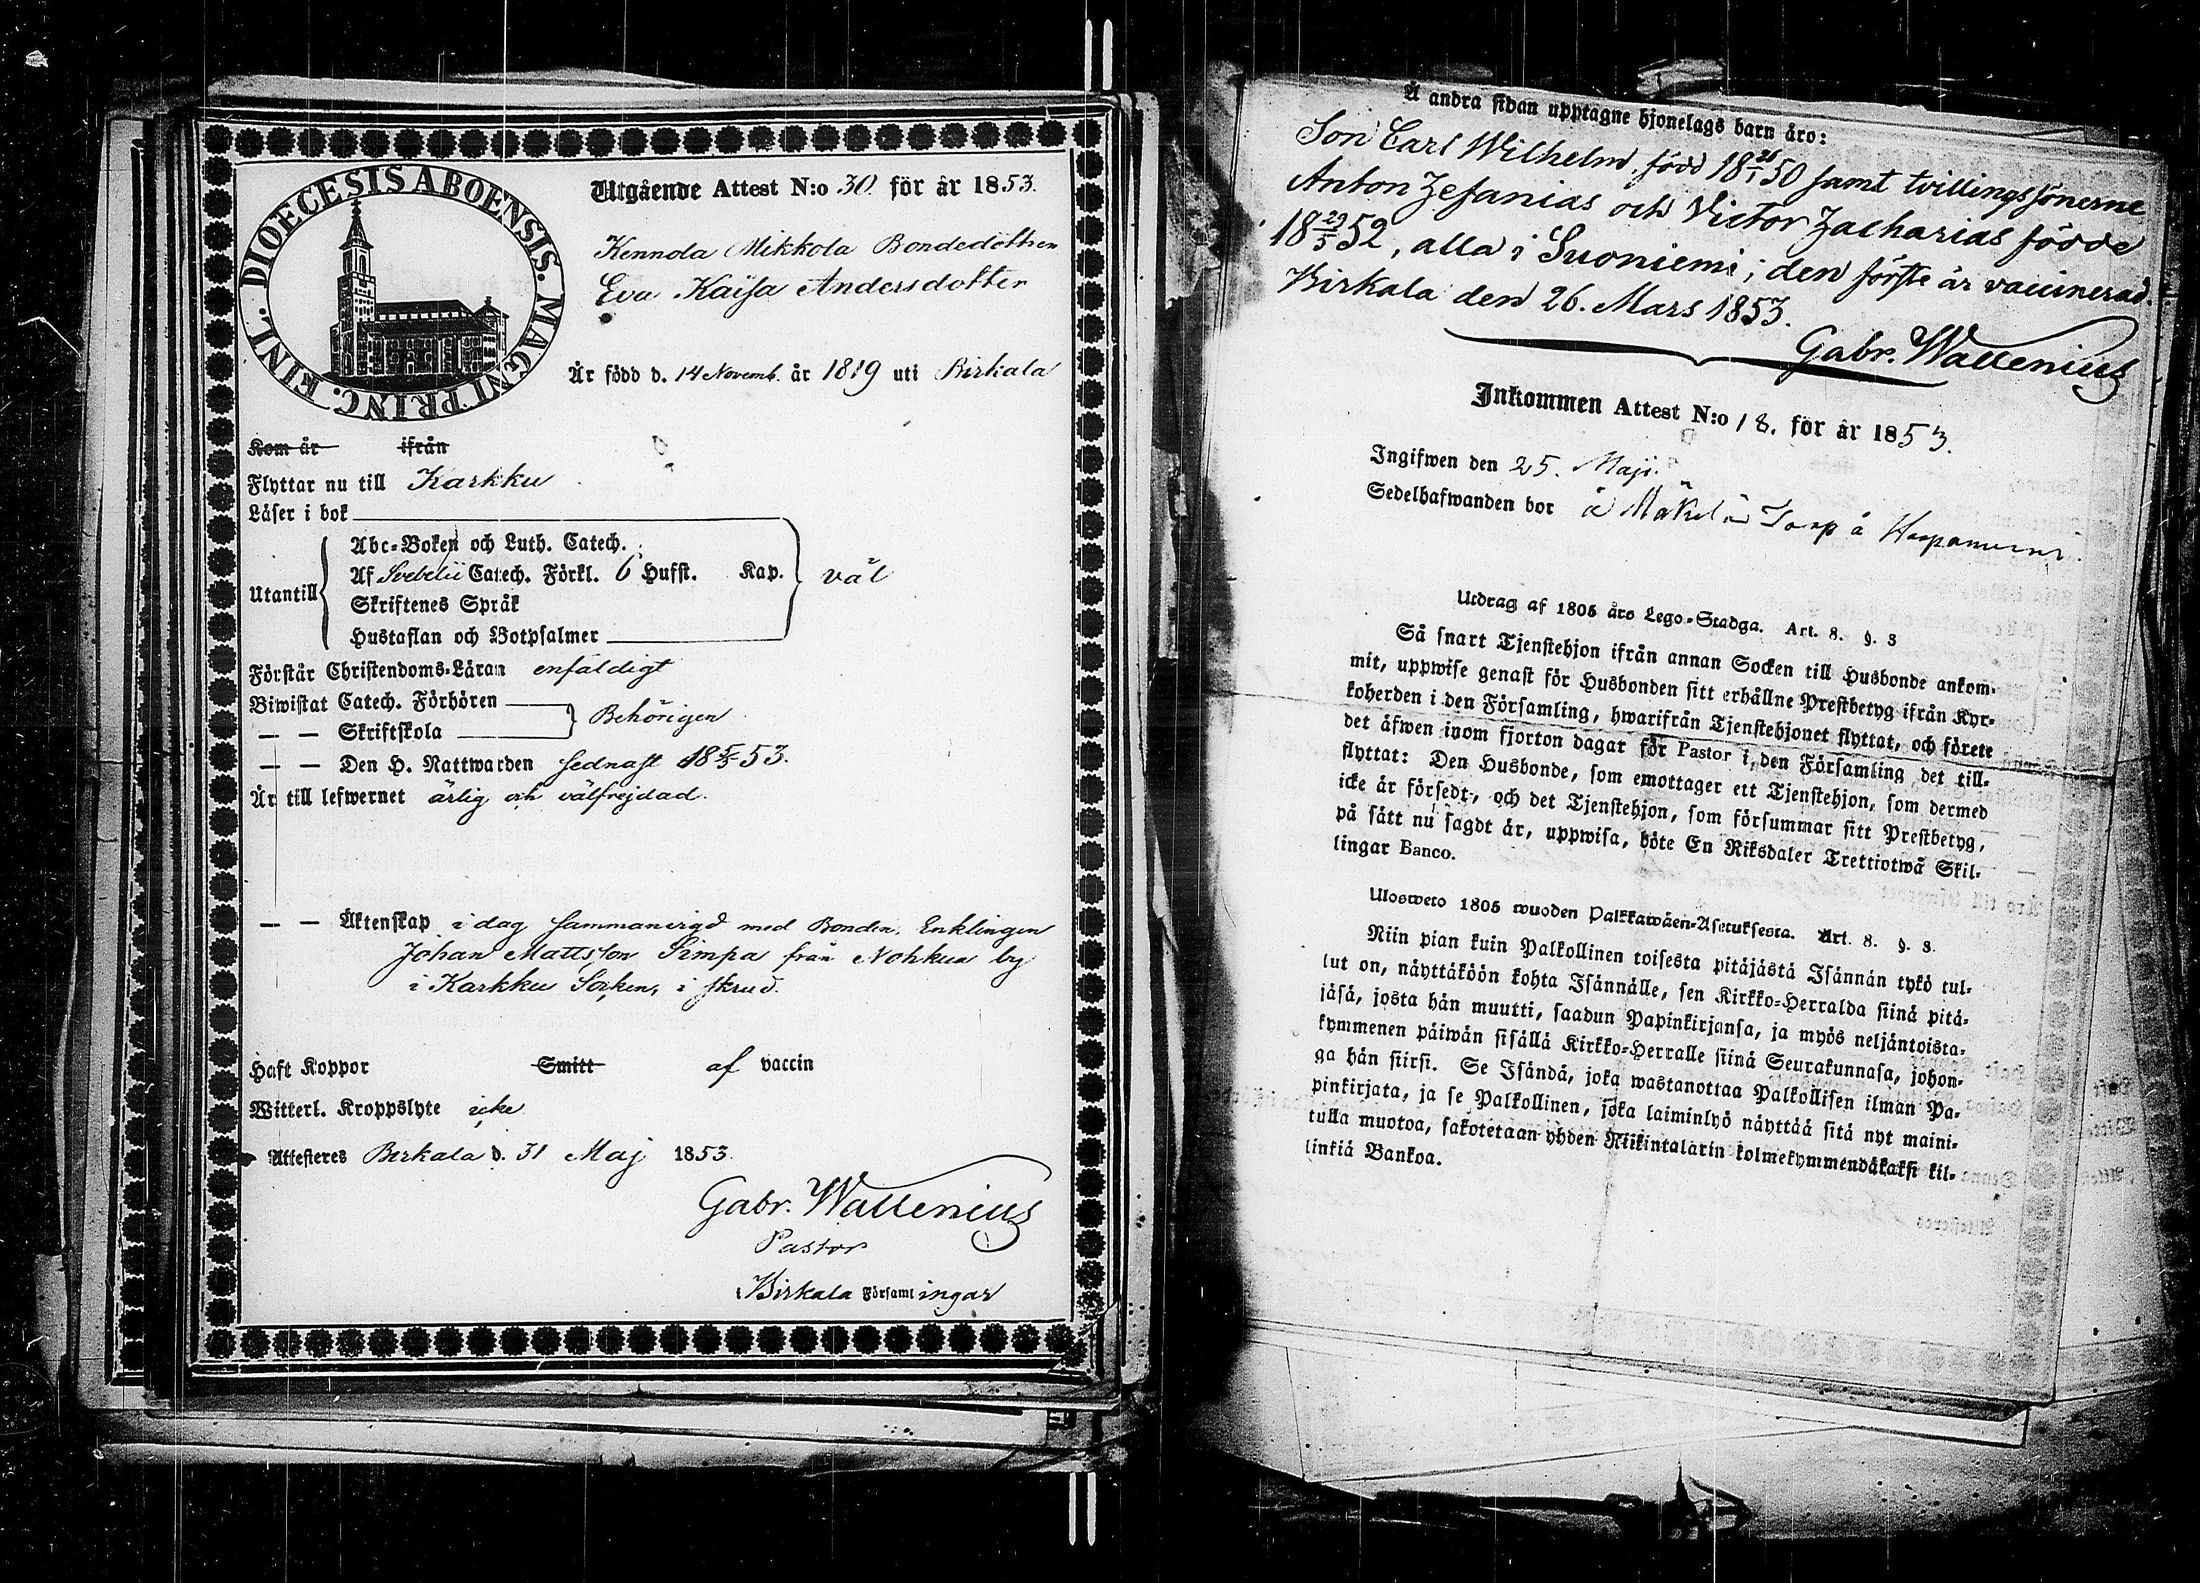 DIOECESIS ABOENSIS. MAGNI PRINC. FINL.
Utgående Attest N:o 30. för år 1853.
Kennola Mikkola Bondedottren
Eva Kaisa Andersdotter
Är född d. 14 Novemb. år 1819 uti Birkala
Kom år ifrån
Flyttar nu till Karkku
Läser i bok
Utantill
Abc-Boken och Luth. Catech.
Af Svebelii Catech. Förkl. 6 Hufst. Kap. väl
Skriftenes Språk
Hustaflan och Botpsalmer
Förstår Christendoms-Läran enfäldigt
Biwistat Catech. Förhören
— — Skriftskola
Behörigen
— — Den H. Nattwarden sednast 18 5/5 53.
Är till lefwernet ärlig och välfrejdad.
— — Äktenskap i dag sammanvigd med Bonden, Enklingen
Johan Mattsson Simpa från Nohkua by
i Karkku Socken, i skrud.
Haft Koppor Smitt af vaccin
Witterl. Kroppslyte icke
Attesteres Birkala d. 31 Maj 1853
Gabr. Wallenius
Pastor
Birkala Församlingar
Å andra sidan upptagne hjonelags barn äro:
Son Carl Wilhelm, född 18 28/1 50 samt tvillingssönerne
Anton Zefanias och Victor Zacharias födde
18 29/5 52, alla i Suoniemi; den förste är vaccinerad.
Birkala den 26. Mars 1853.
Gabr. Wallenius
Inkommen Attest N:o 18. för år 1853.
Ingifwen den 25. Maji.
Sedelhafwanden bor å Mäkelä Torp å Haapaniemi.
Utdrag af 1805 års Lego-Stadga. Art. 8. §. 3
Så snart Tjenstehjon ifrån annan Socken till Husbonde ankom-
mit, uppwise genast för Husbonden sitt erhållne Prestbetyg ifrån Kyr-
koherden i den Församling, hwarifrån Tjenstehjonet flyttat, och förete
det äfwen inom fjorton dagar för Pastor i den Församling det till-
flyttat: Den Husbonde, som emottager ett Tjenstehjon, som dermed
icke är försedt, och det Tjenstehjon, som försummar sitt Prestbetyg,
på sätt nu sagdt är, uppwisa, böte En Riksdaler Trettiotwå Skil-
lingar Banco.
Ulosweto 1805 wuoden Palkkawäen-Asetuksesta. Art. 8. §. 3.
Niin pian kuin Palkollinen toisesta pitäjästä Isännän tykö tul-
lut on, näyttäköön kohta Isännälle, sen Kirkko-Herralda siinä pitä-
jäsä, josta hän muutti, saadun Papinkirjansa, ja myös neljäntoista-
kymmenen päiwän sisällä Kirkko-Herralle siinä Seurakunnasa, johon-
ga hän siirsi. Se Isändä, joka wastanottaa Palkollisen ilman Pa-
pinkirjata, ja se Palkollinen, joka laiminlyö näyttää sitä nyt maini-
tulla muotoa, sakotetaan yhden Riikintalarin kolmekymmendäkaksi kil-
linkiä Bankoa.